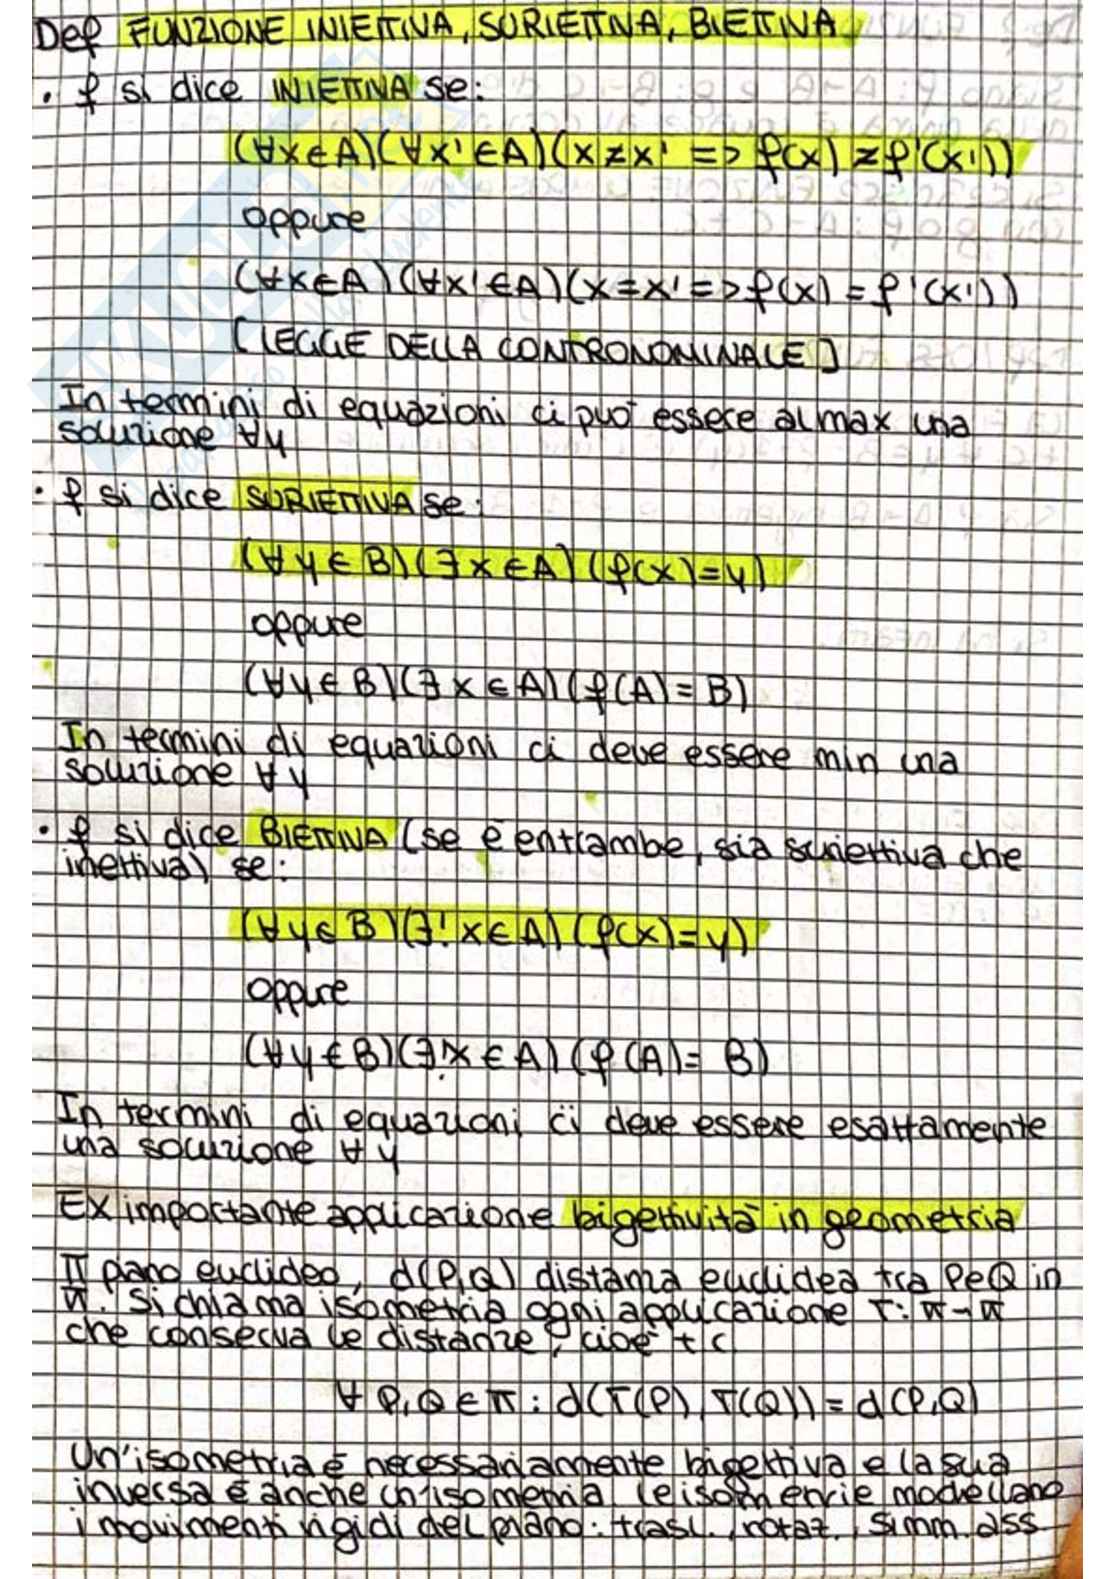 Def FUNZIONE INIETTIVA, SURIETTIVA, BIETTIVA
• f si dice INIETTIVA se:
(∀x∈A)(∀x'∈A)(x≠x' => f(x)≠f'(x'))
oppure
(∀x∈A)(∀x'∈A)(x=x'=>f(x)=f'(x'))
[LEGGE DELLA CONTRONOMINALE]
In termini di equazioni ci può essere al max una
soluzione ∀y
• f si dice SURIETTIVA se:
(∀y∈B)(∃x∈A)(f(x)=y)
oppure
(∀y∈B)(∃x∈A)(f(A)=B)
In termini di equazioni ci deve essere min una
soluzione ∀y
• f si dice BIETTIVA (se è entrambe, sia suriettiva che
inettiva) se:
(∀y∈B)(∃!x∈A)(f(x)=y)
oppure
(∀y∈B)(∃!x∈A)(f(A)=B)
In termini di equazioni ci deve essere esattamente
una soluzione ∀y
EX importante applicazione bigettività in geometria
π piano euclideo, d(P,Q) distanza euclidea tra P e Q in
π. Si chiama isometria ogni applicazione T: π→π
che conserva le distanze, cioè t c
∀ P,Q ∈ π : d(T(P), T(Q)) = d(P,Q)
Un'isometria è necessariamente bigettiva e la sua
inversa è anche un'isometria le isometrie modellano
i movimenti rigidi del piano: trasl., rotaz., simm. ass